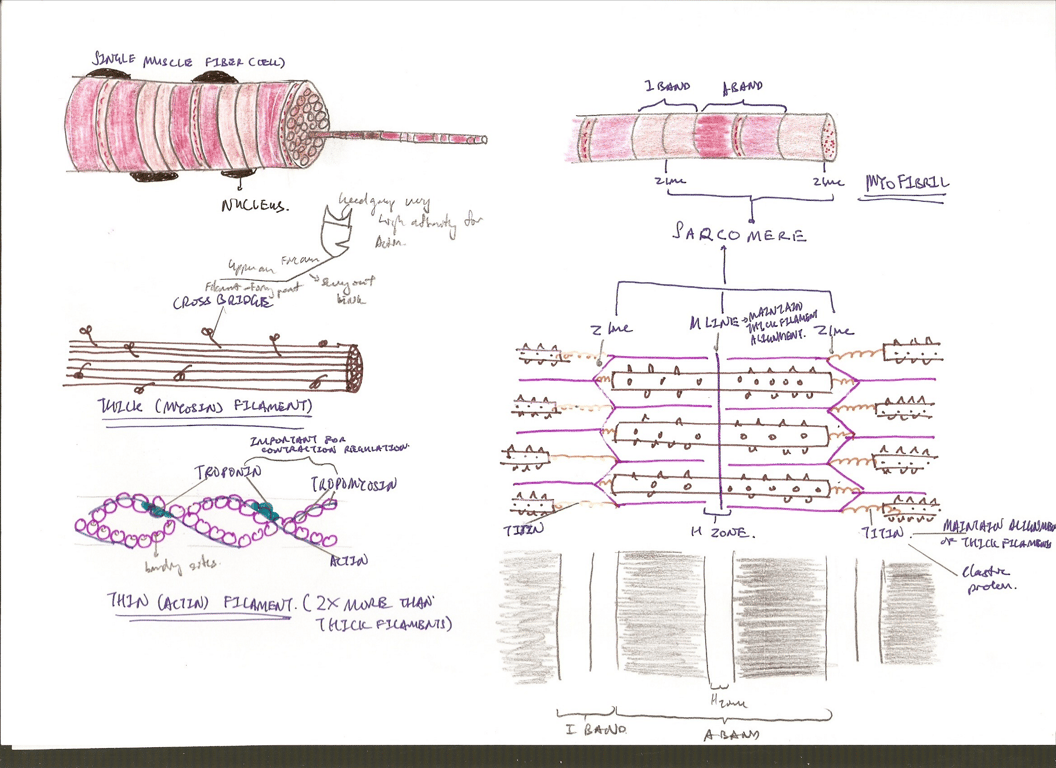 SINGLE MUSCLE FIBER (CELL)
NUCLEUS.
Head group very
high affinity for
Actin.
Filament-forming part
CROSS BRIDGE
THICK (MYOSIN) FILAMENT)
IMPORTANT FOR
CONTRACTION REGULATION
TROPONIN
TROPOMYOSIN
ACTIN
binding sites.
THIN (ACTIN) FILAMENT. (2X MORE THAN
THICK FILAMENTS)
I BAND
A BAND
Z line
Z line
MYOFIBRIL
SARCOMERE
Z line
M LINE → MAINTAIN
THICK FILAMENT
ALIGNMENT.
Z line
TITIN
H ZONE.
TITIN
MAINTAIN ALIGNMENT
OF THICK FILAMENTS
Elastic
protein.
H zone
I BAND
A BAND